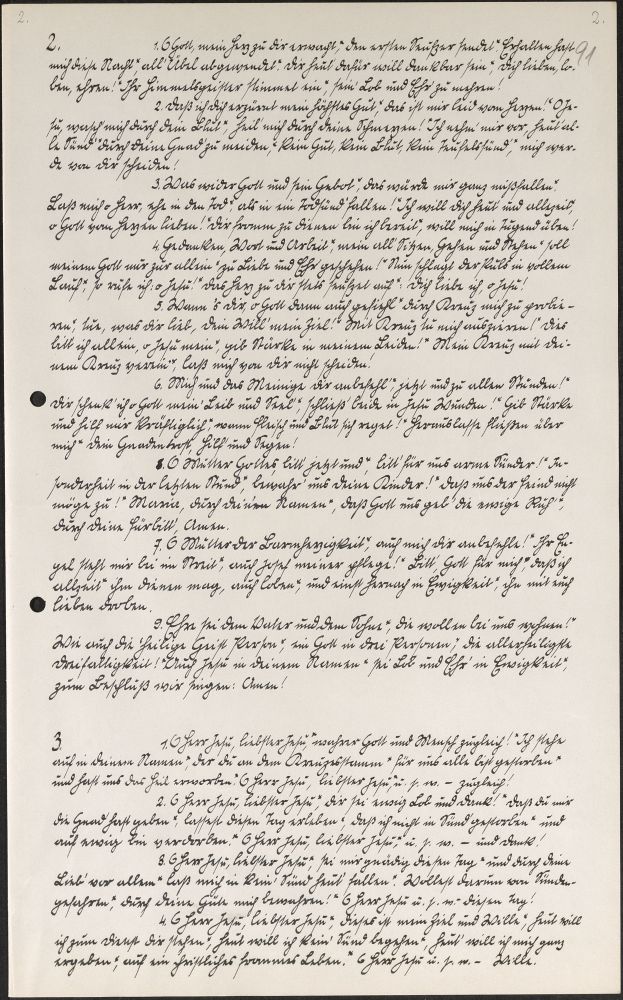 2.
2.
91
2. 1. O Gott, mein Herz zu dir erwacht," den ersten Seufzer sendet." Erhalten hast
mich diese Nacht" all' Übel abgewendet." dir heut dafür will dankbar sein," dich lieben, lo-
ben, ehren!" Ihr Himmelsgeister stimmet ein", sein Lob und Ehr' zu mehren!
2. Daß ich dich erzürnt mein höchstes Gut", das ist mir leid von Herzen!" O Je-
su, wasch' mich durch dein Blut" heil' mich durch deine Schmerzen!" Ich nehm' mir vor, heut' al-
le Sünd' durch deine Gnad' zu meiden," kein Gut, kein Blut, kein Teufelsfünd'," mich wer-
de von dir scheiden!
3. Was wider Gott und sein Gebot", das würde mir ganz mißfallen."
Laß mich o Herr, ehe in den Tod" als in ein' Todsünd' fallen!" Ich will dich heut' und allezeit",
o Gott von Herzen lieben!" dir fromm zu dienen bin ich bereit", will mich in Tugend üben!
4. Gedanken, Wort und Arbeit" mein all' Sitzen, Gehen und Stehen" soll
meinem Gott nur zur allein" zu Liebe und Ehr' geschehen!" Nun schlagt der Puls in vollem
Lauf", so rufe ich: o Jesu!" das Herz zu dir stets seufzet auf": dich liebe ich o Jesu!
5. Wann 's dir, o Gott dann auch gefiehl" durch Kreuz mich zu probie-
ren", tue, was dir lieb, dein Will' mein Ziel!" Mit Kreuz tu mich auszieren!" dies
bitt ich allein, o Jesu mein", gib Stärke in meinem Leiden!" Mein Kreuz mit dei-
nem Kreuz verein'", laß mich von dir nicht scheiden!
6. Mich und das Meinige dir anbefehl'", jetzt und zu allen Stunden!"
dir schenk' ich o Gott mein' Leib und Seel'", schließ' beide in Jesu Wunden!" Gib Stärke
und hilf mir kräftiglich", wann Fleisch und Blut sich reget!" Heraus lasse fließen über
mich" dein Gnadentrost, Hilf' und Segen!
8. O Mutter Gottes bitt' jetzt und", bitt' für uns arme Sünder!" In-
sonderheit in der letzten Stund'", bewahr' uns deine Kinder!" daß uns der Feind nicht
möge zu!" Maria, durch deinen Namen", daß Gott uns geb' die ewige Ruh'",
durch deine Fürbitt', Amen.
7. O Mutter der Barmherzigkeit", auch mich dir anbefehle!" Ihr En-
gel steht mir bei im Streit", auch Josef meiner pflege!" Bitt' Gott für mich" daß ich
allzeit" ihm dienen mag, auch loben", und einst hernach in Ewigkeit", ihn mit euch
lieben droben.
9. Ehre sei dem Vater und dem Sohne", die wollen bei uns wohnen!"
Wie auch die heilige Geist Person", ein Gott in drei Personen", die allerheiligste
Dreifaltigkeit!" Auch Jesu in deinem Namen" sei Lob und Ehr' in Ewigkeit",
zum Beschluß wir singen: Amen!
3. 1. O Herr Jesu, liebster Jesu," wahrer Gott und Mensch zugleich!" Ich stehe
auf in deinem Namen", der du an dem Kreuzesstamm" für uns alle bist gestorben"
und hast uns das Heil erworben." O Herr Jesu, liebster Jesu", u. s. w. – zugleich!
2. O Herr Jesu, liebster Jesu", dir sei ewig Lob und Dank!" daß du mir
die Gnad' hast geben", lassest diesen Tag erleben", daß ich nicht in Sünd' gestorben" und
auf ewig bin verdorben." O Herr Jesu, liebster Jesu," u. s. w. – und Dank!
3. O Herr Jesu, liebster Jesu" sei mir gnädig diesen Tag" und durch deine
Lieb' vor allem" laß mich in kein' Sünd' heut' fallen." Wollest darum von Sünden-
gefahren" durch deine Güte mich bewahren!" O Herr Jesu u. s. w. – diesen Tag!
4. O Herr Jesu, liebster Jesu", dieses ist mein Ziel und Wille", heut' will
ich zum Dienst dir stehen", heut' will ich kein' Sünd' begehen", heut' will ich mich ganz
ergeben", auf ein christliches frommes Leben." O Herr Jesu u. s. w. – Wille.